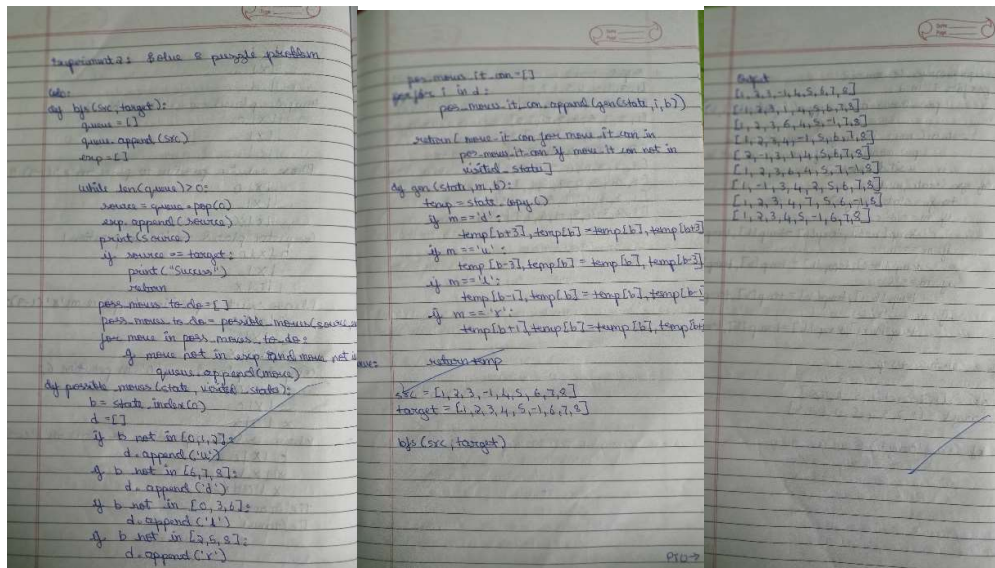 Experiment 2: Solve 8 puzzle problem
Code:
def bfs(src, target):
queue = []
queue.append(src)
exp = []
while len(queue)>0:
source = queue.pop(0)
exp.append(source)
print(source)
if source == target:
print("Success")
return
poss_moves_to_do=[]
poss_moves_to_do = possible_moves(source,
for move in poss_moves_to_do:
if move not in exp and move not in
queue.append(move)
def possible_moves(state, visited_states):
b = state.index(0)
d = []
if b not in [0,1,2]:
d.append('u')
if b not in [6,7,8]:
d.append('d')
if b not in [0,3,6]:
d.append('l')
if b not in [2,5,8]:
d.append('r')
pos_moves_it_can=[]
for i in d:
pos_moves_it_can.append(gen(state,i,b))
return [move_it_can for move_it_can in
pos_moves_it_can if move_it_can not in
visited_states]
def gen(state,m,b):
temp = state.copy()
if m=='d':
temp[b+3],temp[b]=temp[b],temp[b+3]
if m=='u':
temp[b-3],temp[b]=temp[b],temp[b-3]
if m=='l':
temp[b-1],temp[b]=temp[b],temp[b-1]
if m=='r':
temp[b+1],temp[b]=temp[b],temp[b+
return temp
src = [1,2,3,-1,4,5,6,7,8]
target = [1,2,3,4,5,-1,6,7,8]
bfs(src, target)
PTO→
Output
[1,2,3,-1,4,5,6,7,8]
[-1,2,3,1,4,5,6,7,8]
[1,2,3,6,4,5,-1,7,8]
[1,2,3,4,-1,5,6,7,8]
[2,-1,3,1,4,5,6,7,8]
[1,2,3,6,4,5,7,-1,8]
[1,-1,3,4,2,5,6,7,8]
[1,2,3,4,7,5,6,-1,8]
[1,2,3,4,5,-1,6,7,8]